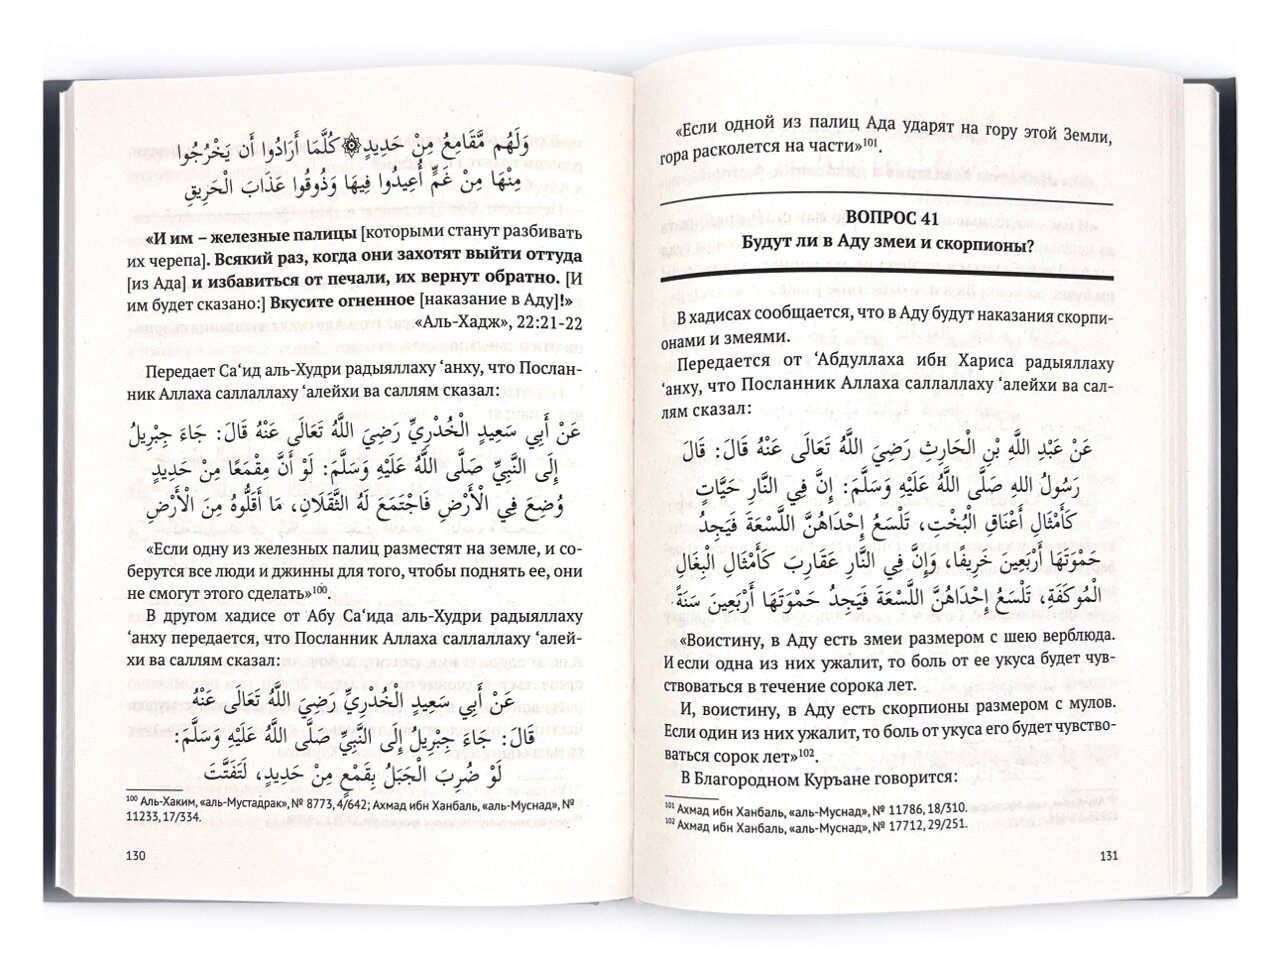 وَلَهُم مَّقَامِعُ مِنْ حَدِيدٍ۞كُلَّمَا أَرَادُوا أَن يَخْرُجُوا
مِنْهَا مِنْ غَمٍّ أُعِيدُوا فِيهَا وَذُوقُوا عَذَابَ الْحَرِيقِ
«И им – железные палицы [которыми станут разбивать
их черепа]. Всякий раз, когда они захотят выйти оттуда
[из Ада] и избавиться от печали, их вернут обратно. [И
им будет сказано:] Вкусите огненное [наказание в Аду]!»
«Аль-Хадж», 22:21-22
Передает Са‘ид аль-Худри радыяллаху ‘анху, что Послан-
ник Аллаха саллаллаху ‘алейхи ва саллям сказал:
عَنْ أَبِي سَعِيدٍ الْخُدْرِيِّ رَضِيَ اللَّهُ تَعَالَى عَنْهُ قَالَ: جَاءَ جِبْرِيلُ
إِلَى النَّبِيِّ صَلَّى اللَّهُ عَلَيْهِ وَسَلَّمَ: لَوْ أَنَّ مِقْمَعًا مِنْ حَدِيدٍ
وُضِعَ فِي الْأَرْضِ فَاجْتَمَعَ لَهُ الثَّقَلَانِ، مَا أَقَلُّوهُ مِنَ الْأَرْضِ
«Если одну из железных палиц разместят на земле, и со-
берутся все люди и джинны для того, чтобы поднять ее, они
не смогут этого сделать»¹⁰⁰.
В другом хадисе от Абу Са‘ида аль-Худри радыяллаху
‘анху передается, что Посланник Аллаха саллаллаху ‘алей-
хи ва саллям сказал:
عَنْ أَبِي سَعِيدٍ الْخُدْرِيِّ رَضِيَ اللَّهُ تَعَالَى عَنْهُ
قَالَ: جَاءَ جِبْرِيلُ إِلَى النَّبِيِّ صَلَّى اللَّهُ عَلَيْهِ وَسَلَّمَ:
لَوْ ضُرِبَ الْجَبَلُ بِقَمْعٍ مِنْ حَدِيدٍ، لَتَفَتَّتَ
¹⁰⁰ Аль-Хаким, «аль-Мустадрак», № 8773, 4/642; Ахмад ибн Ханбаль, «аль-Муснад», №
11233, 17/334.
130
«Если одной из палиц Ада ударят на гору этой Земли,
гора расколется на части»¹⁰¹.
ВОПРОС 41
Будут ли в Аду змеи и скорпионы?
В хадисах сообщается, что в Аду будут наказания скорпи-
онами и змеями.
Передается от ‘Абдуллаха ибн Хариса радыяллаху
‘анху, что Посланник Аллаха саллаллаху ‘алейхи ва сал-
лям сказал:
عَنْ عَبْدِ اللَّهِ بْنِ الْحَارِثِ رَضِيَ اللَّهُ تَعَالَى عَنْهُ قَالَ: قَالَ
رَسُولُ اللهِ صَلَّى اللَّهُ عَلَيْهِ وَسَلَّمَ: إِنَّ فِي النَّارِ حَيَّاتٍ
كَأَمْثَالِ أَعْنَاقِ الْبُخْتِ، تَلْسَعُ إِحْدَاهُنَّ اللَّسْعَةَ فَيَجِدُ
حَمْوَتَهَا أَرْبَعِينَ خَرِيفًا، وَإِنَّ فِي النَّارِ عَقَارِبَ كَأَمْثَالِ الْبِغَالِ
الْمُوكَفَةِ، تَلْسَعُ إِحْدَاهُنَّ اللَّسْعَةَ فَيَجِدُ حَمْوَتَهَا أَرْبَعِينَ سَنَةً.
«Воистину, в Аду есть змеи размером с шею верблюда.
И если одна из них ужалит, то боль от ее укуса будет чув-
ствоваться в течение сорока лет.
И, воистину, в Аду есть скорпионы размером с мулов.
Если один из них ужалит, то боль от укуса его будет чувство-
ваться сорок лет»¹⁰².
В Благородном Куръане говорится:
¹⁰¹ Ахмад ибн Ханбаль, «аль-Муснад», № 11786, 18/310.
¹⁰² Ахмад ибн Ханбаль, «аль-Муснад», № 17712, 29/251.
131